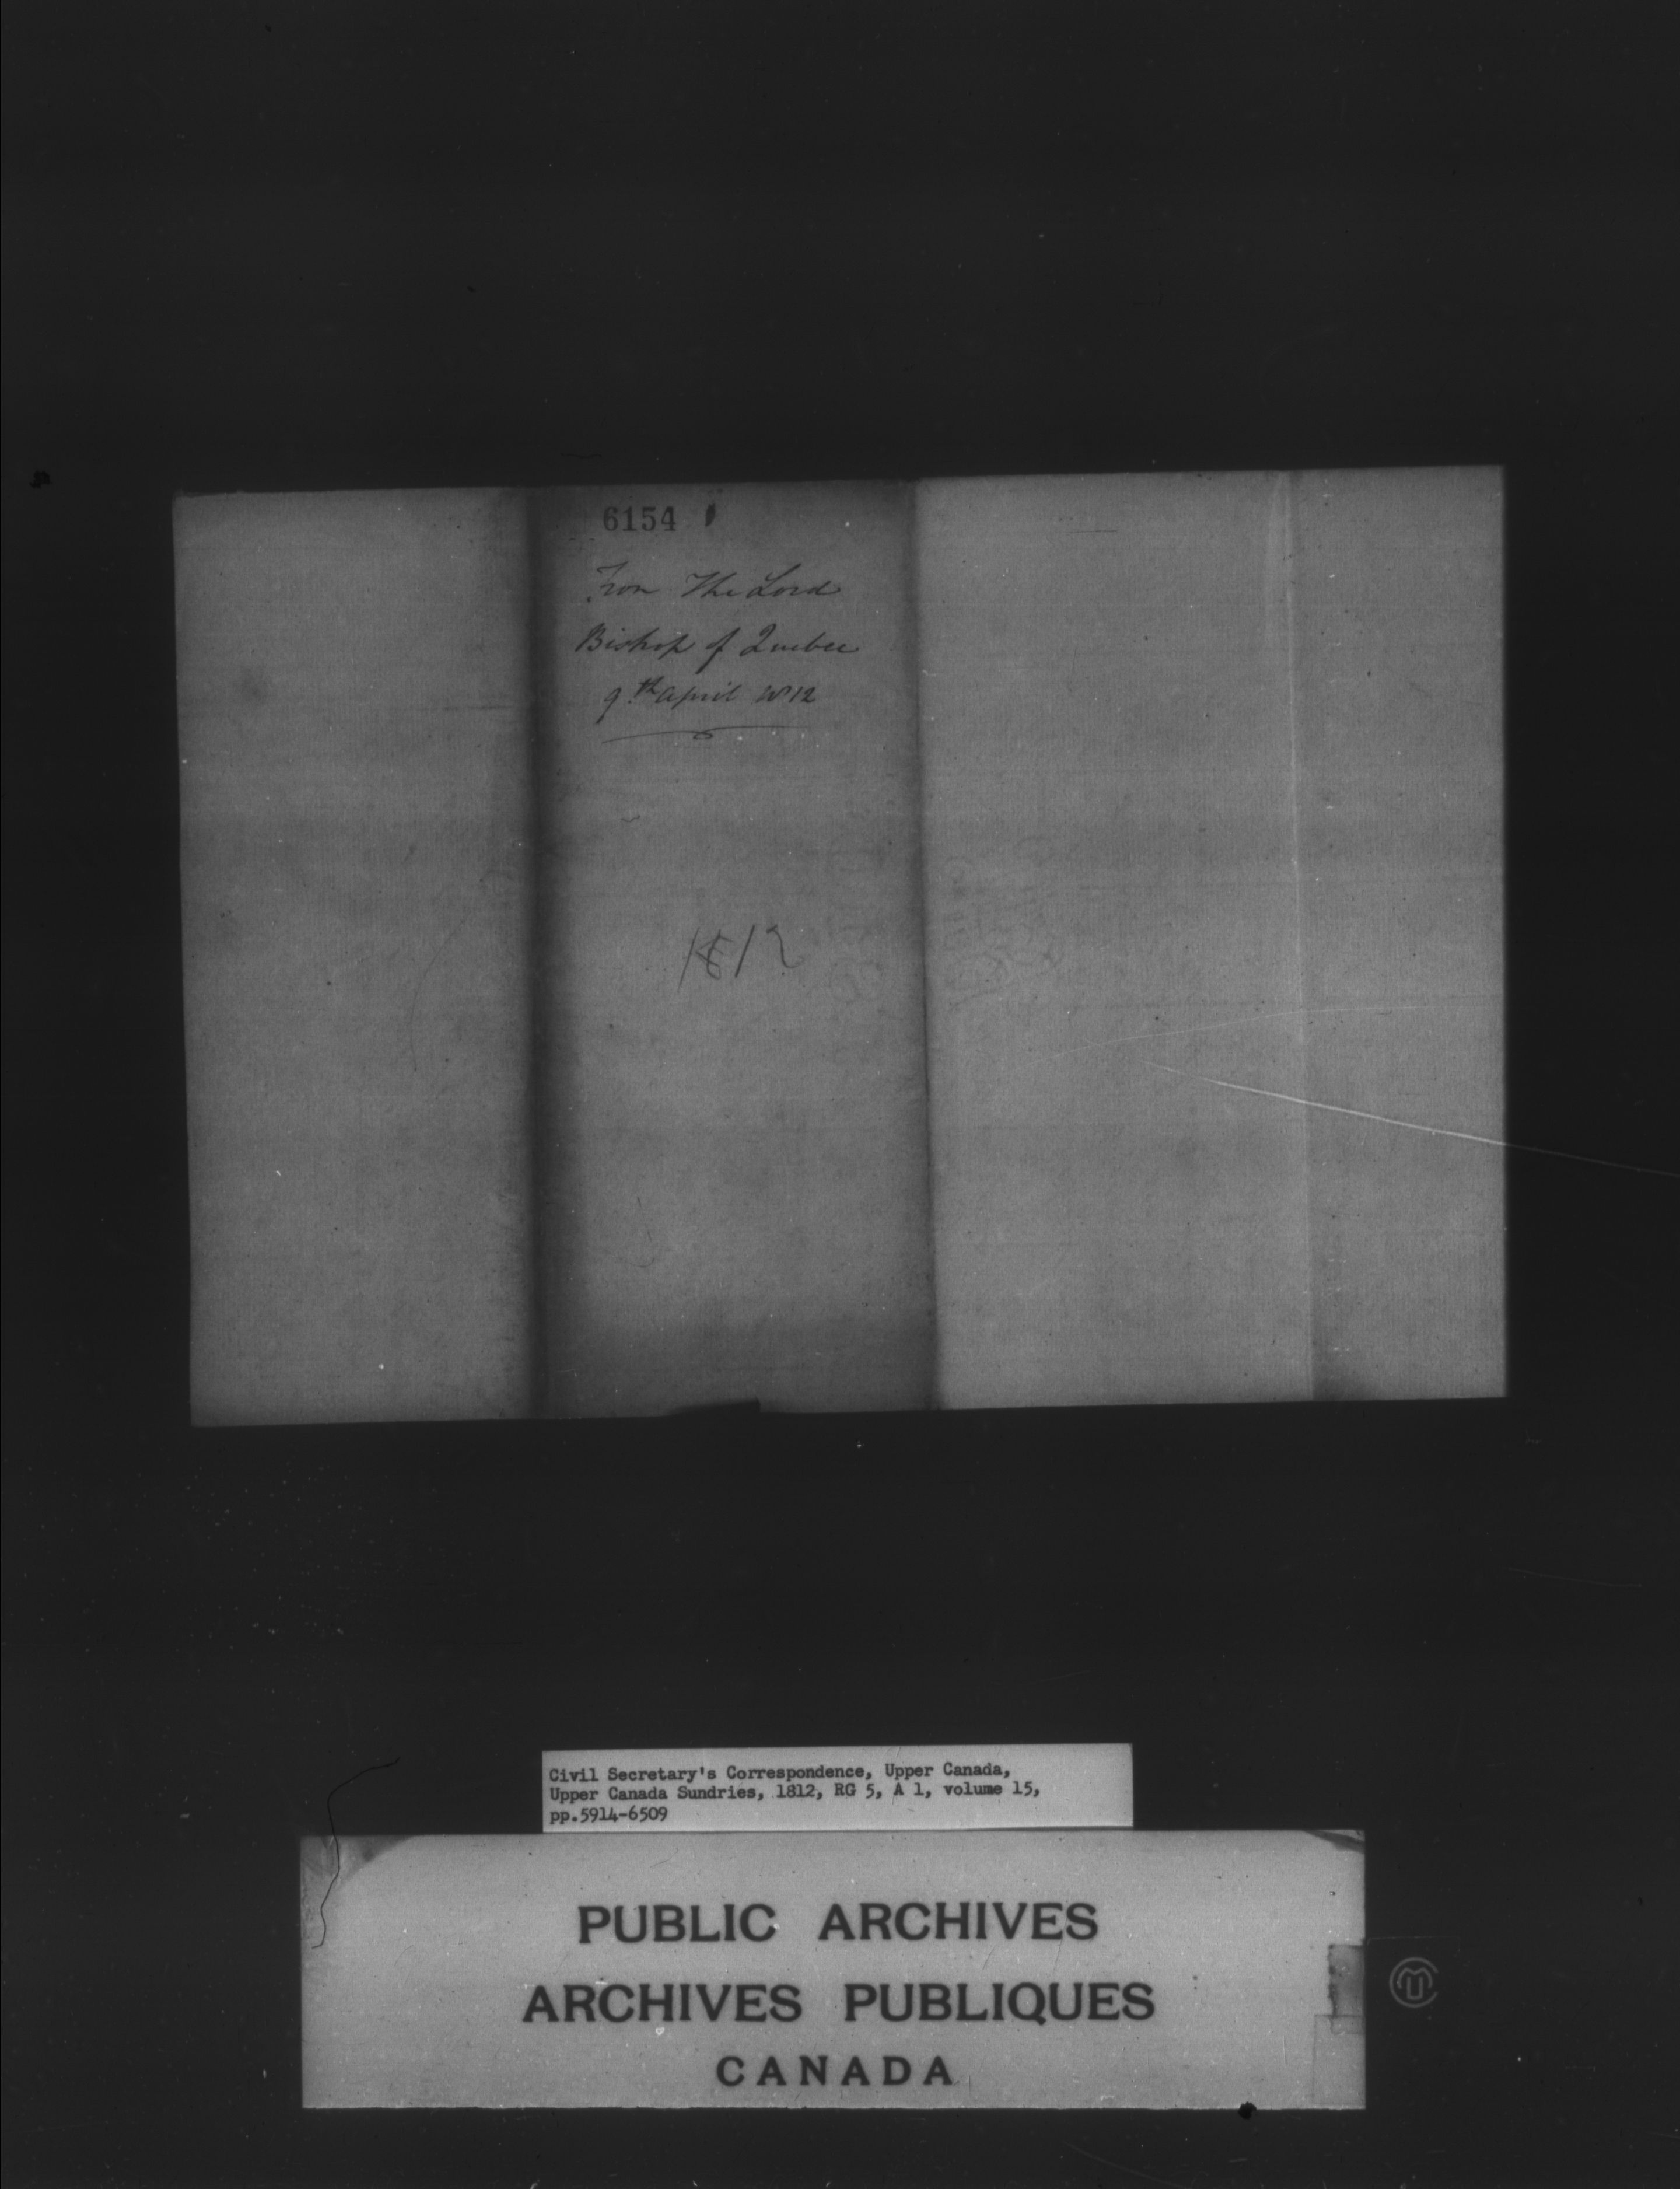 6154
From The Lord
Bishop of Quebec
9th April 1812
1812
Civil Secretary's Correspondence, Upper Canada,
Upper Canada Sundries, 1812, RG 5, A 1, volume 15,
pp.5914-6509
PUBLIC ARCHIVES
ARCHIVES PUBLIQUES
CANADA